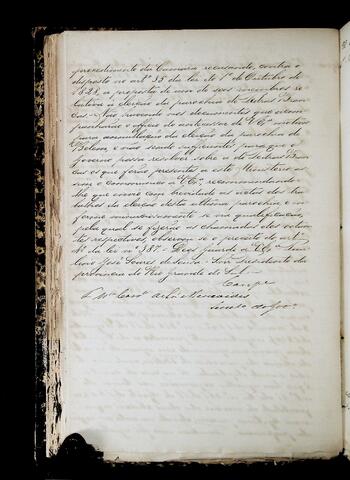 procedimento da Camara recusando, contra o
disposto no artº 38 da lei do 1º de Outubro de
1828, a proposta de um de seus membros re-
lativa á eleição da parochia de Pedras Bran-
cas. Não havendo nos documentos que acom-
panharão o officio do antecessor de V. Exª motivo
para annullação da eleição da parochia de
Belem, e não sendo sufficientes para que o
Governo possa resolver sobre a de Pedras Bran-
cas os que forão presentes a este Ministerio, as-
sim o communico a V. Exª, recommendando-
lhe que envie com brevidade as actas dos tra-
balhos da eleição desta ultima parochia, e in-
forme minuciosamente se na qualificação,
pela qual se fizerão as chamadas dos votan-
tes respectivos, observou-se o preceito do arti-
º da lei nº 387. Deos guarde a V. Exª
José Soares de Souza. Snr. Presidente da
provincia do Rio Grande do Sul.
Conf.e